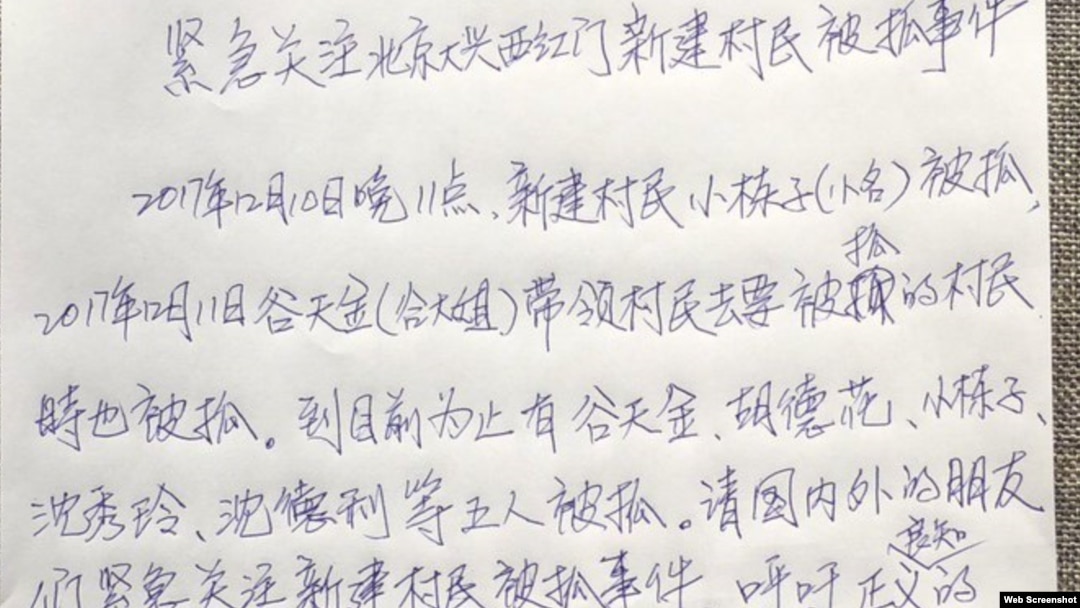 紧急关注北京大兴西红门新建村民被抓事件
2017年12月10日晚11点、新建村民小栋子(小名)被抓,
抓
2017年12月11日谷天金(谷大姐)带领村民去要被的村民
時也被抓。到目前为止有谷天金、胡德花、小栋子、
沈秀玲、沈德利等五人被抓。请国内外的朋友
良知
们紧急关注新建村民被抓事件 呼吁正义的
Web Screenshot